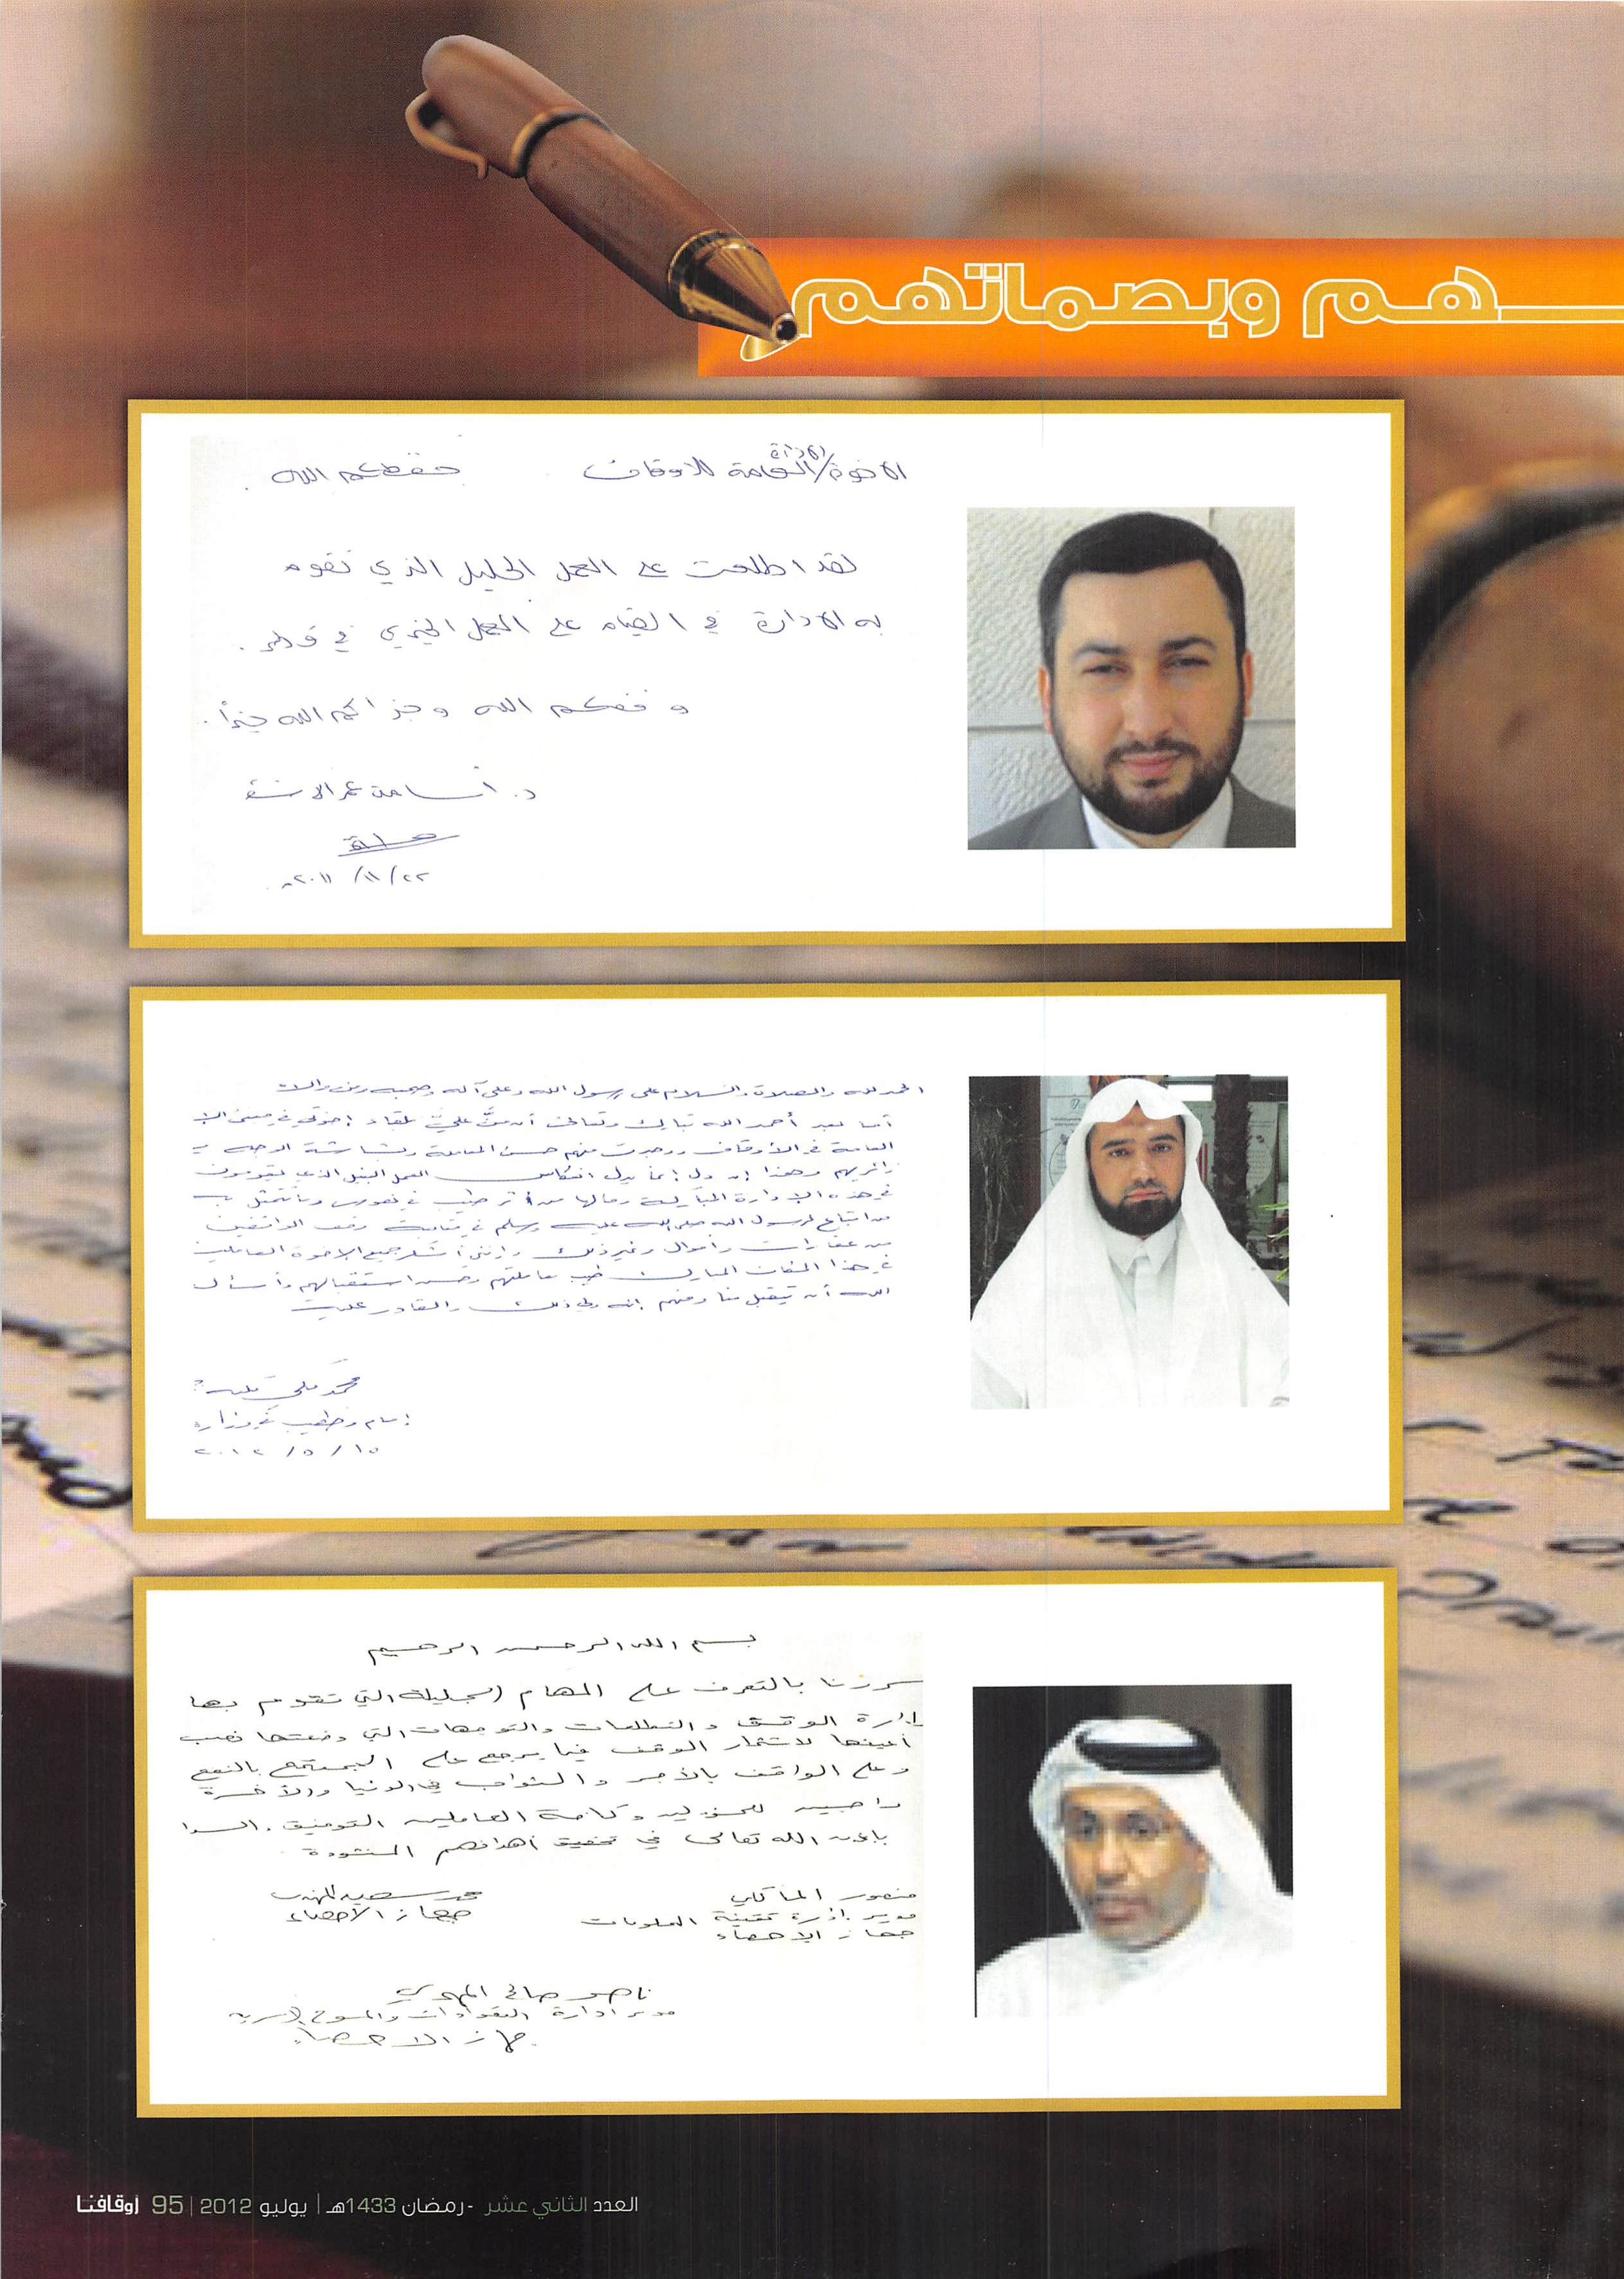 هم وبصماتهم
الاخوة/الادارة العامة للاوقاف حفظكم الله
لقد اطلعت على العمل الجليل الذي تقوم
به الادارة في القيام على العمل الخيري في قطر .
وفقكم الله وجزاكم الله خيراً .
د. أسامة عمر الاشقر
٢٢/١١/٢٠١١م
الحمد لله والصلاة والسلام على رسول الله وعلى آله وصحبه ومن والاه
أما بعد أحمد الله تبارك وتعالى أن منّ عليّ بلقاء إخوتي في مبنى الإ
العامة في الأوقاف ووجدت منهم حسن المعاملة وبشاشة الوجه
زائريهم وهذا إن دل إنما يدل انعكاس العمل النبيل الذي يقومون
في هذه الإدارة المباركة ومالها من أثر طيب في نفوس
من اتباع لرسول الله صلى الله عليه وسلم في وقف الواقفين
من عقارات وأموال وغير ذلك وإنني أشكر جميع الإخوة العاملين
في هذا المكان المبارك طيب معاملتهم وحسن استقبالهم وأسأل
الله أن يتقبل منا ومنهم إنه ولي ذلك والقادر عليه
محمد علي
إمام وخطيب في وزارة
١٥ / ٥ / ٢٠١٢
بسم الله الرحمن الرحيم
سررنا بالتعرف على المهام الجليلة التي تقوم بها
إدارة الوقف والتطلعات والتوجهات التي وضعتها نصب
أعينها لاستثمار الوقف فيما يرجع على المجتمع بالنفع
وعلى الواقف بالأجر والثواب في الدنيا والآخرة
وكافة العاملين التوفيق . السدا
بإذن الله تعالى في تحقيق أهدافهم المنشودة .
منصور المالكي
مدير إدارة تقنية المعلومات
جهاز الإحصاء
محمد سعيد المهندي
جهاز الاحصاء
ناصر صالح المهدي
مدير ادارة التعدادات والمسوح الاسرية
جهاز الاحصاء
العدد الثاني عشر - رمضان 1433هـ | يوليو 2012 | 95 أوقافنا